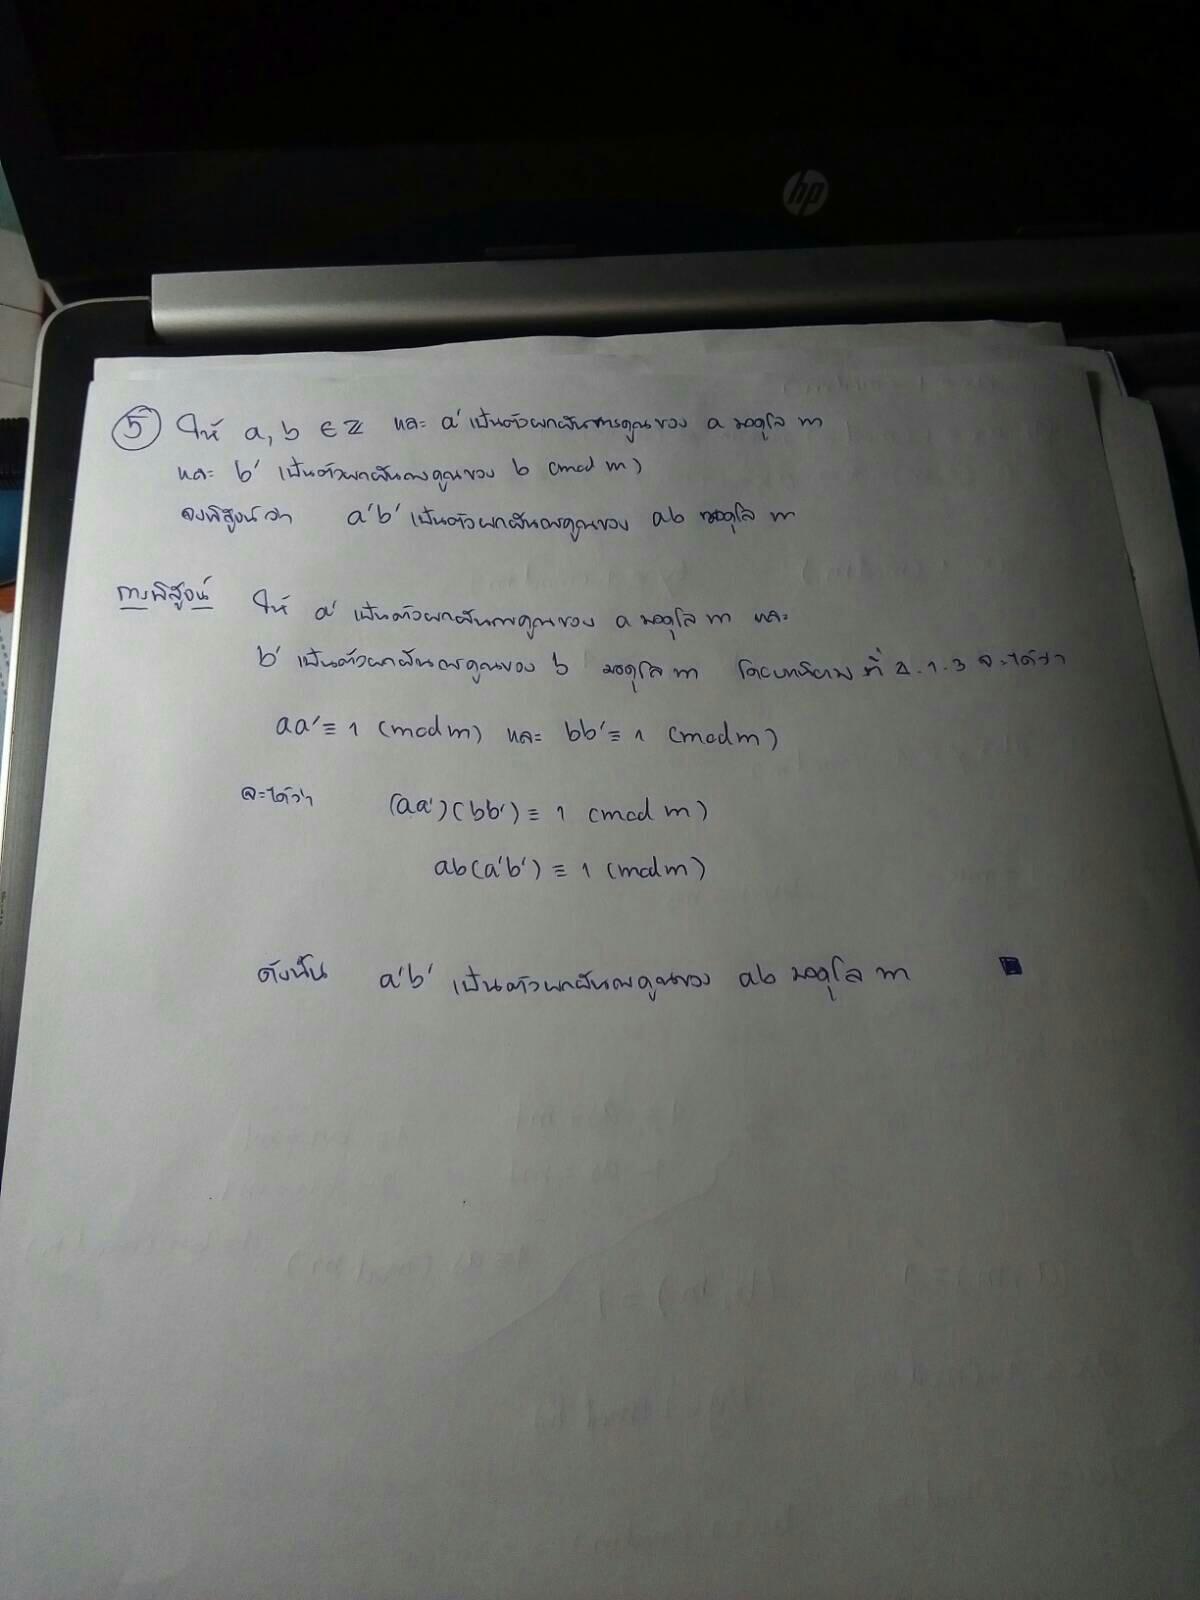 hp
⑤ ให้ a, b ∈ ℤ และ a' เป็นตัวผกผันการคูณของ a มอดุโล m
และ b' เป็นตัวผกผันการคูณของ b (mod m)
จงพิสูจน์ว่า a'b' เป็นตัวผกผันการคูณของ ab มอดุโล m
การพิสูจน์ ให้ a' เป็นตัวผกผันการคูณของ a มอดุโล m และ
b' เป็นตัวผกผันการคูณของ b มอดุโล m โดยบทนิยามที่ 4.1.3 จะได้ว่า
aa' ≡ 1 (mod m) และ bb' ≡ 1 (mod m)
จะได้ว่า (aa')(bb') ≡ 1 (mod m)
ab(a'b') ≡ 1 (mod m)
ดังนั้น a'b' เป็นตัวผกผันการคูณของ ab มอดุโล m